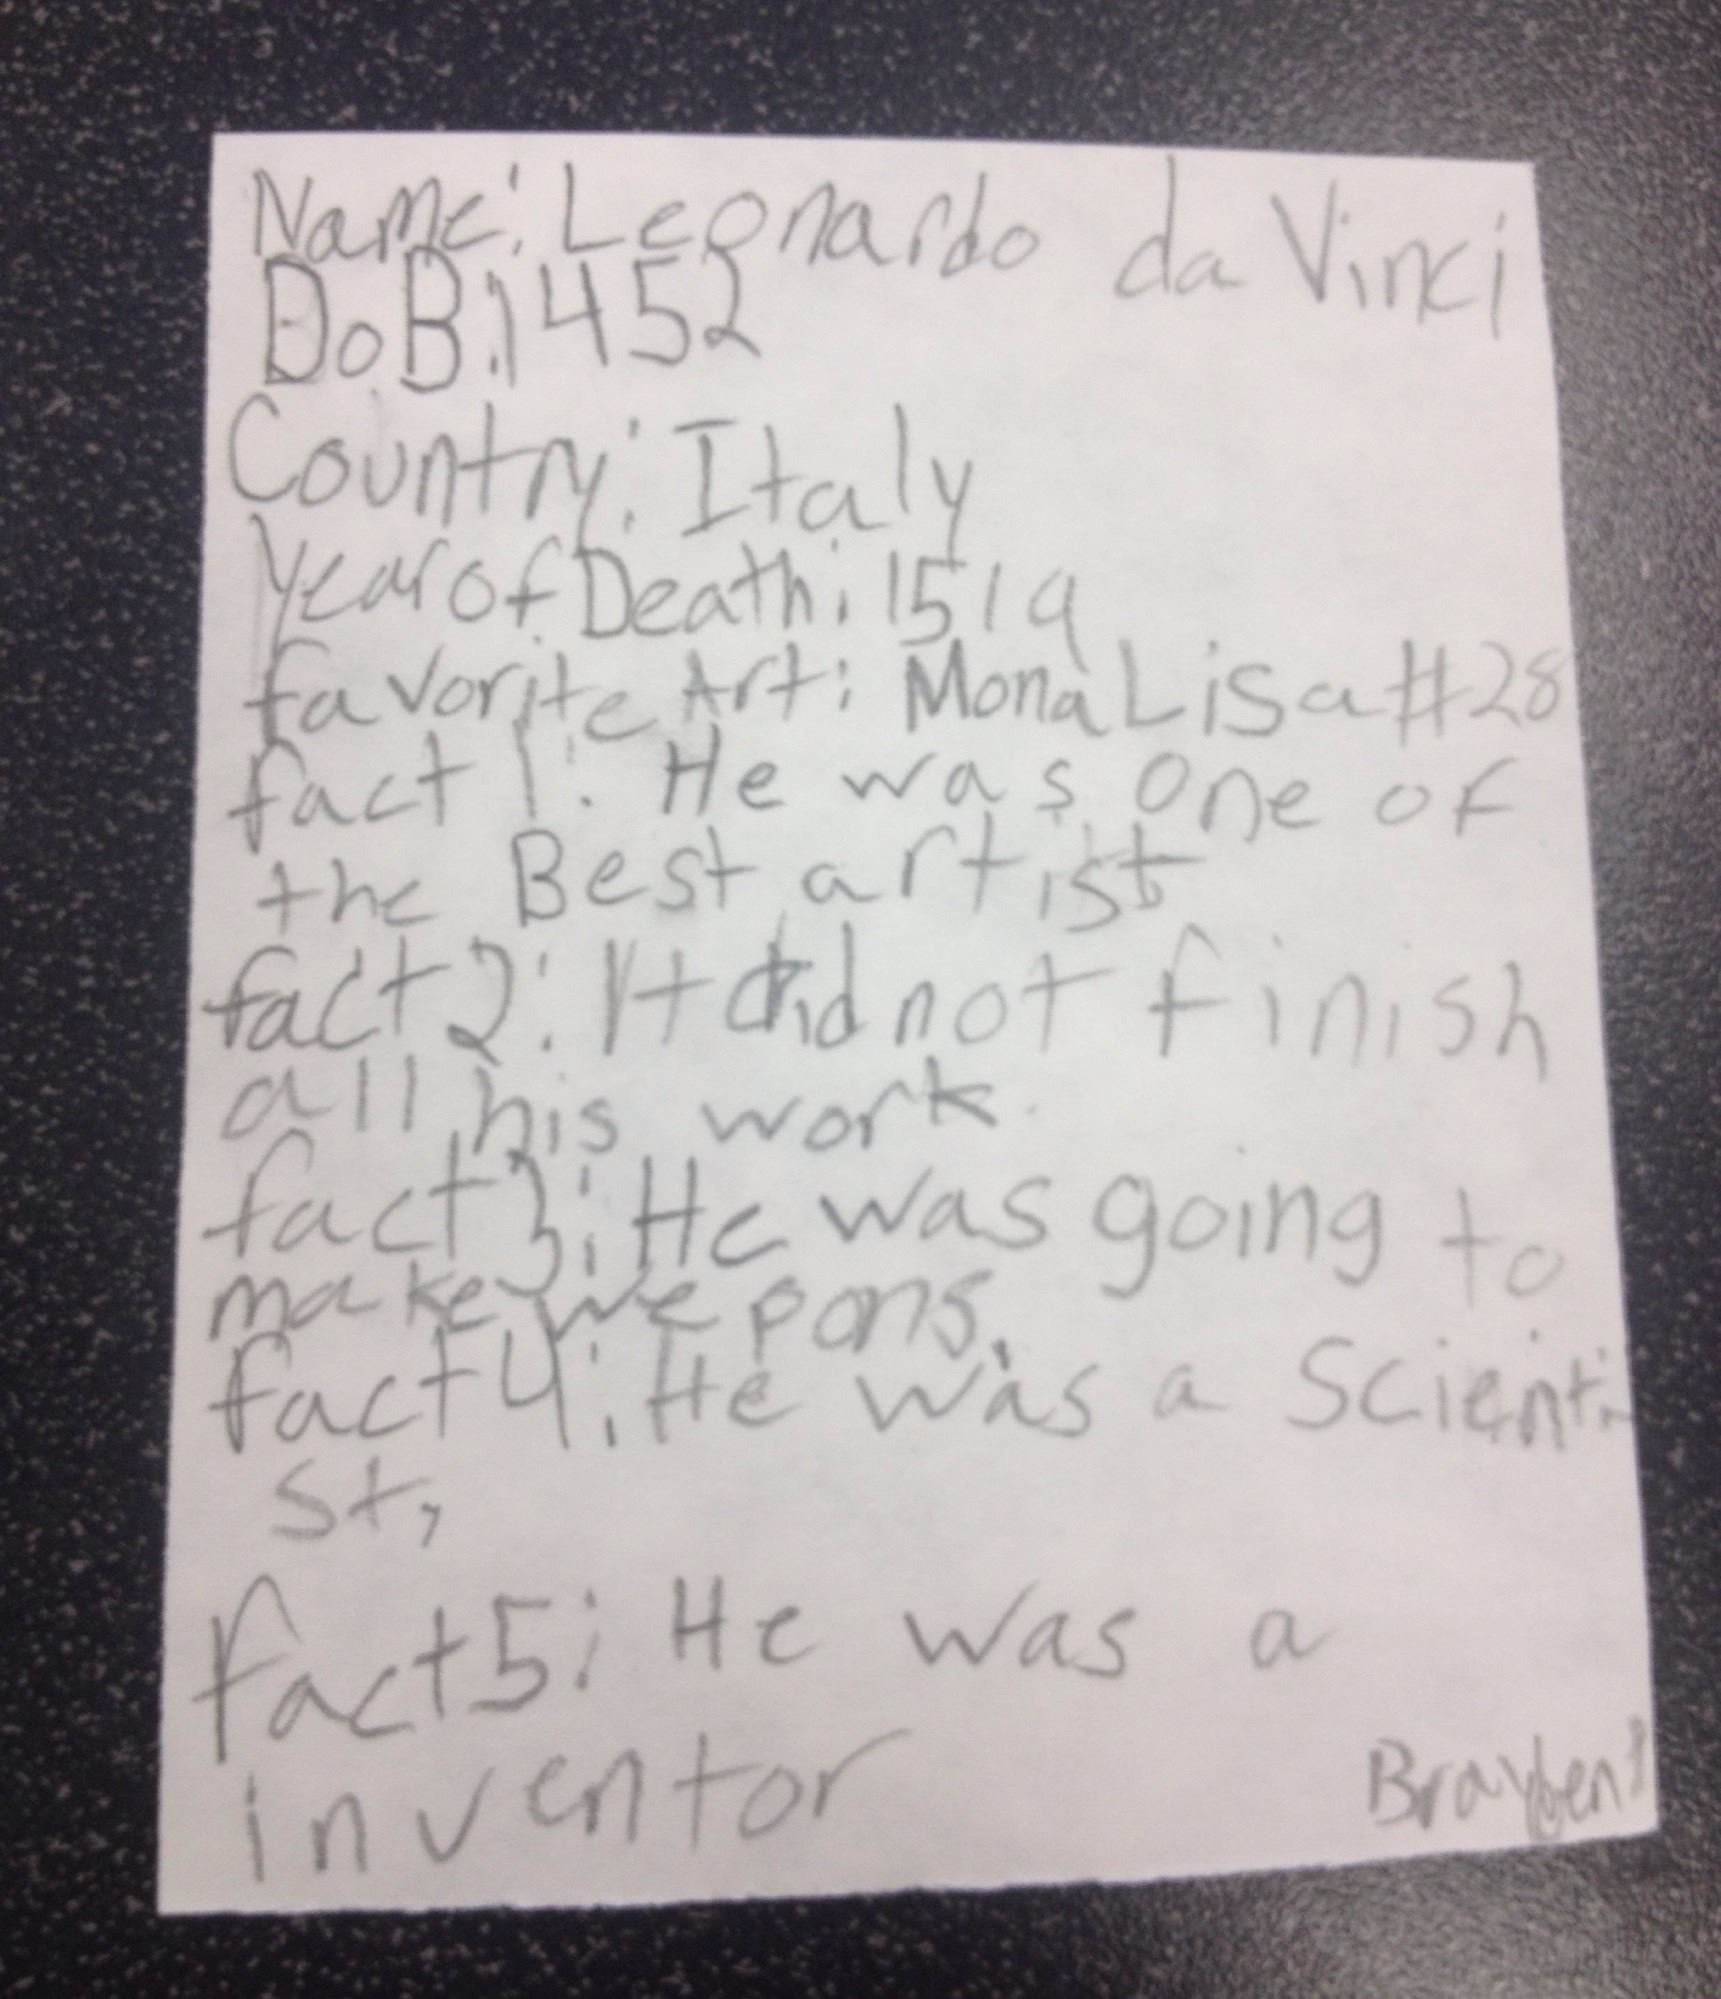 Name: Leonardo da Vinci
DoB: 1452
Country: Italy
Year of Death: 1519
favorite Art: Mona Lisa #28
fact 1: He was one of
the Best artist
fact 2: It did not finish
all his work.
fact 3: He was going to
make wepons.
fact 4: He was a Scienti
st,
fact 5: He was a
inventor